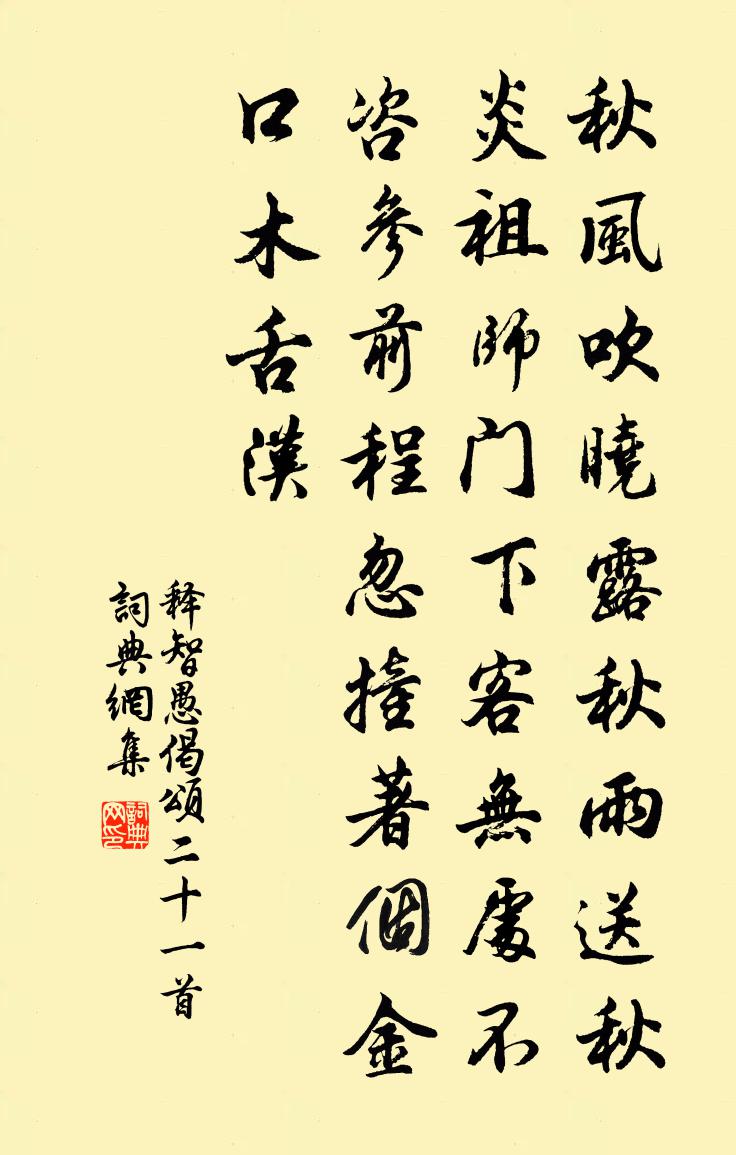 秋風吹曉露秋雨送秋
炎祖師门下客無處不
咨參前程忽撞著個金
口木舌漢
释智愚偈頌二十一首
詞典網集
詞典网印